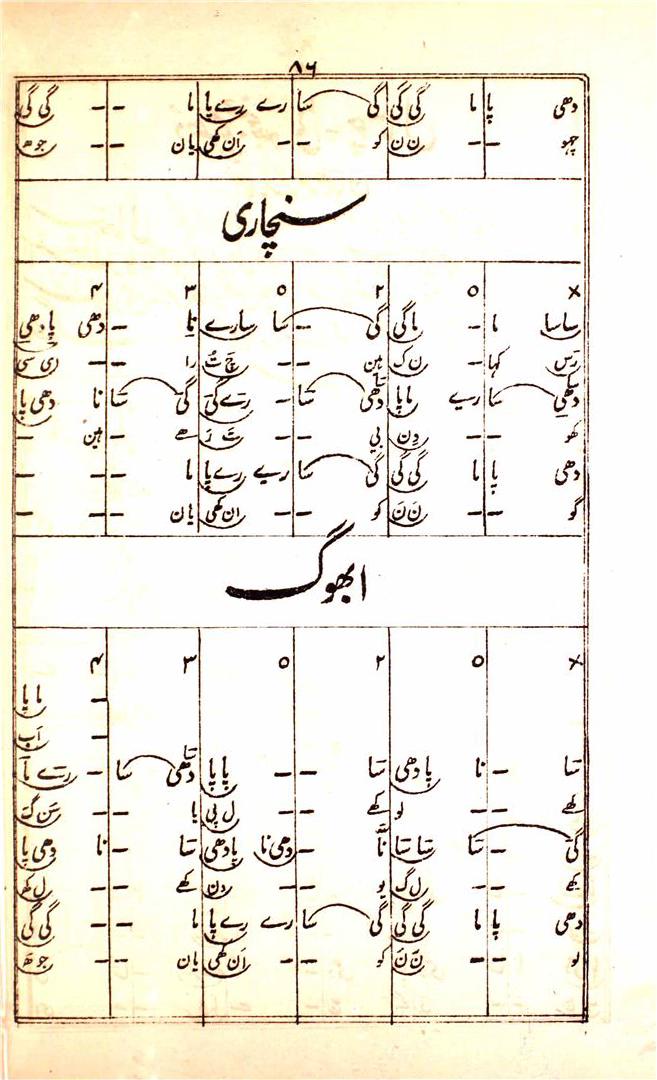 ۸۶
دھی پا ما – گی گی گی سا رے رے پا ما – – گی گی
چھو – – ن ن کو – – ان کھی یان – – جوھ
سنچاری
× ۰ ۲ ۰ ۳ ۴
سا سا ما – ما گی گی – سا سارے نا – دھی پا دھی
رس کہا – ن ک ہین – – چ ت را – – ای سی
دھی سا رے ما پا دھی سا – رے گی گی سا نا دھی پا
کھو – – دن بی – – ت ر ھے – ہین –
دھی پا ما – گی گی گی سا رے رے پا ما – – –
گو – – ن ن کو – – ان کھی یان – – –
ابھوگ
× ۰ ۲ ۰ ۳ ۴
– ما پا
– اب
سا – نا پا دھی سا – – پا پا دھی سا – رے نا
لھے – – لو کھے – – ل پی یا – – سن گ
گی – سا سا سا نا – دھی نا پا دھی سا – نا دھی پا
کھے – – ل گ یو – – دن کھے – – ل کھ
دھی پا ما – گی گی گی سا رے رے پا ما – – گی گی
لو – – ن ن کو – – ان کھی یان – – جوھ